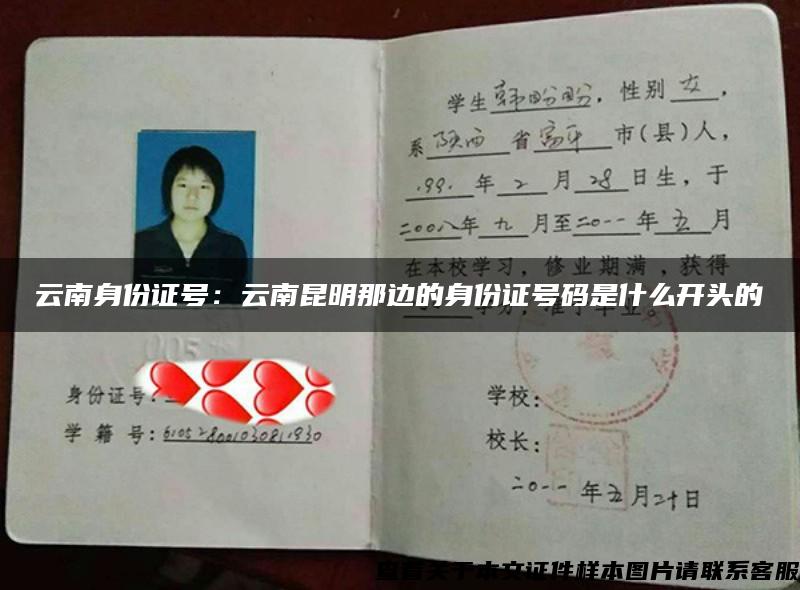 学生韩盼盼，性别女，
系陕西省富平市(县)人，
1991年2月28日生，于
二00八年九月至二0一一年五月
在本校学习，修业期满，获得
云南身份证号：云南昆明那边的身份证号码是什么开头的
学分，准予毕业。
005
身份证号:
学籍号:610528001030811930
学校:
校长:
二0一一年五月二十日
查看关于本文证件样本图片请联系客服